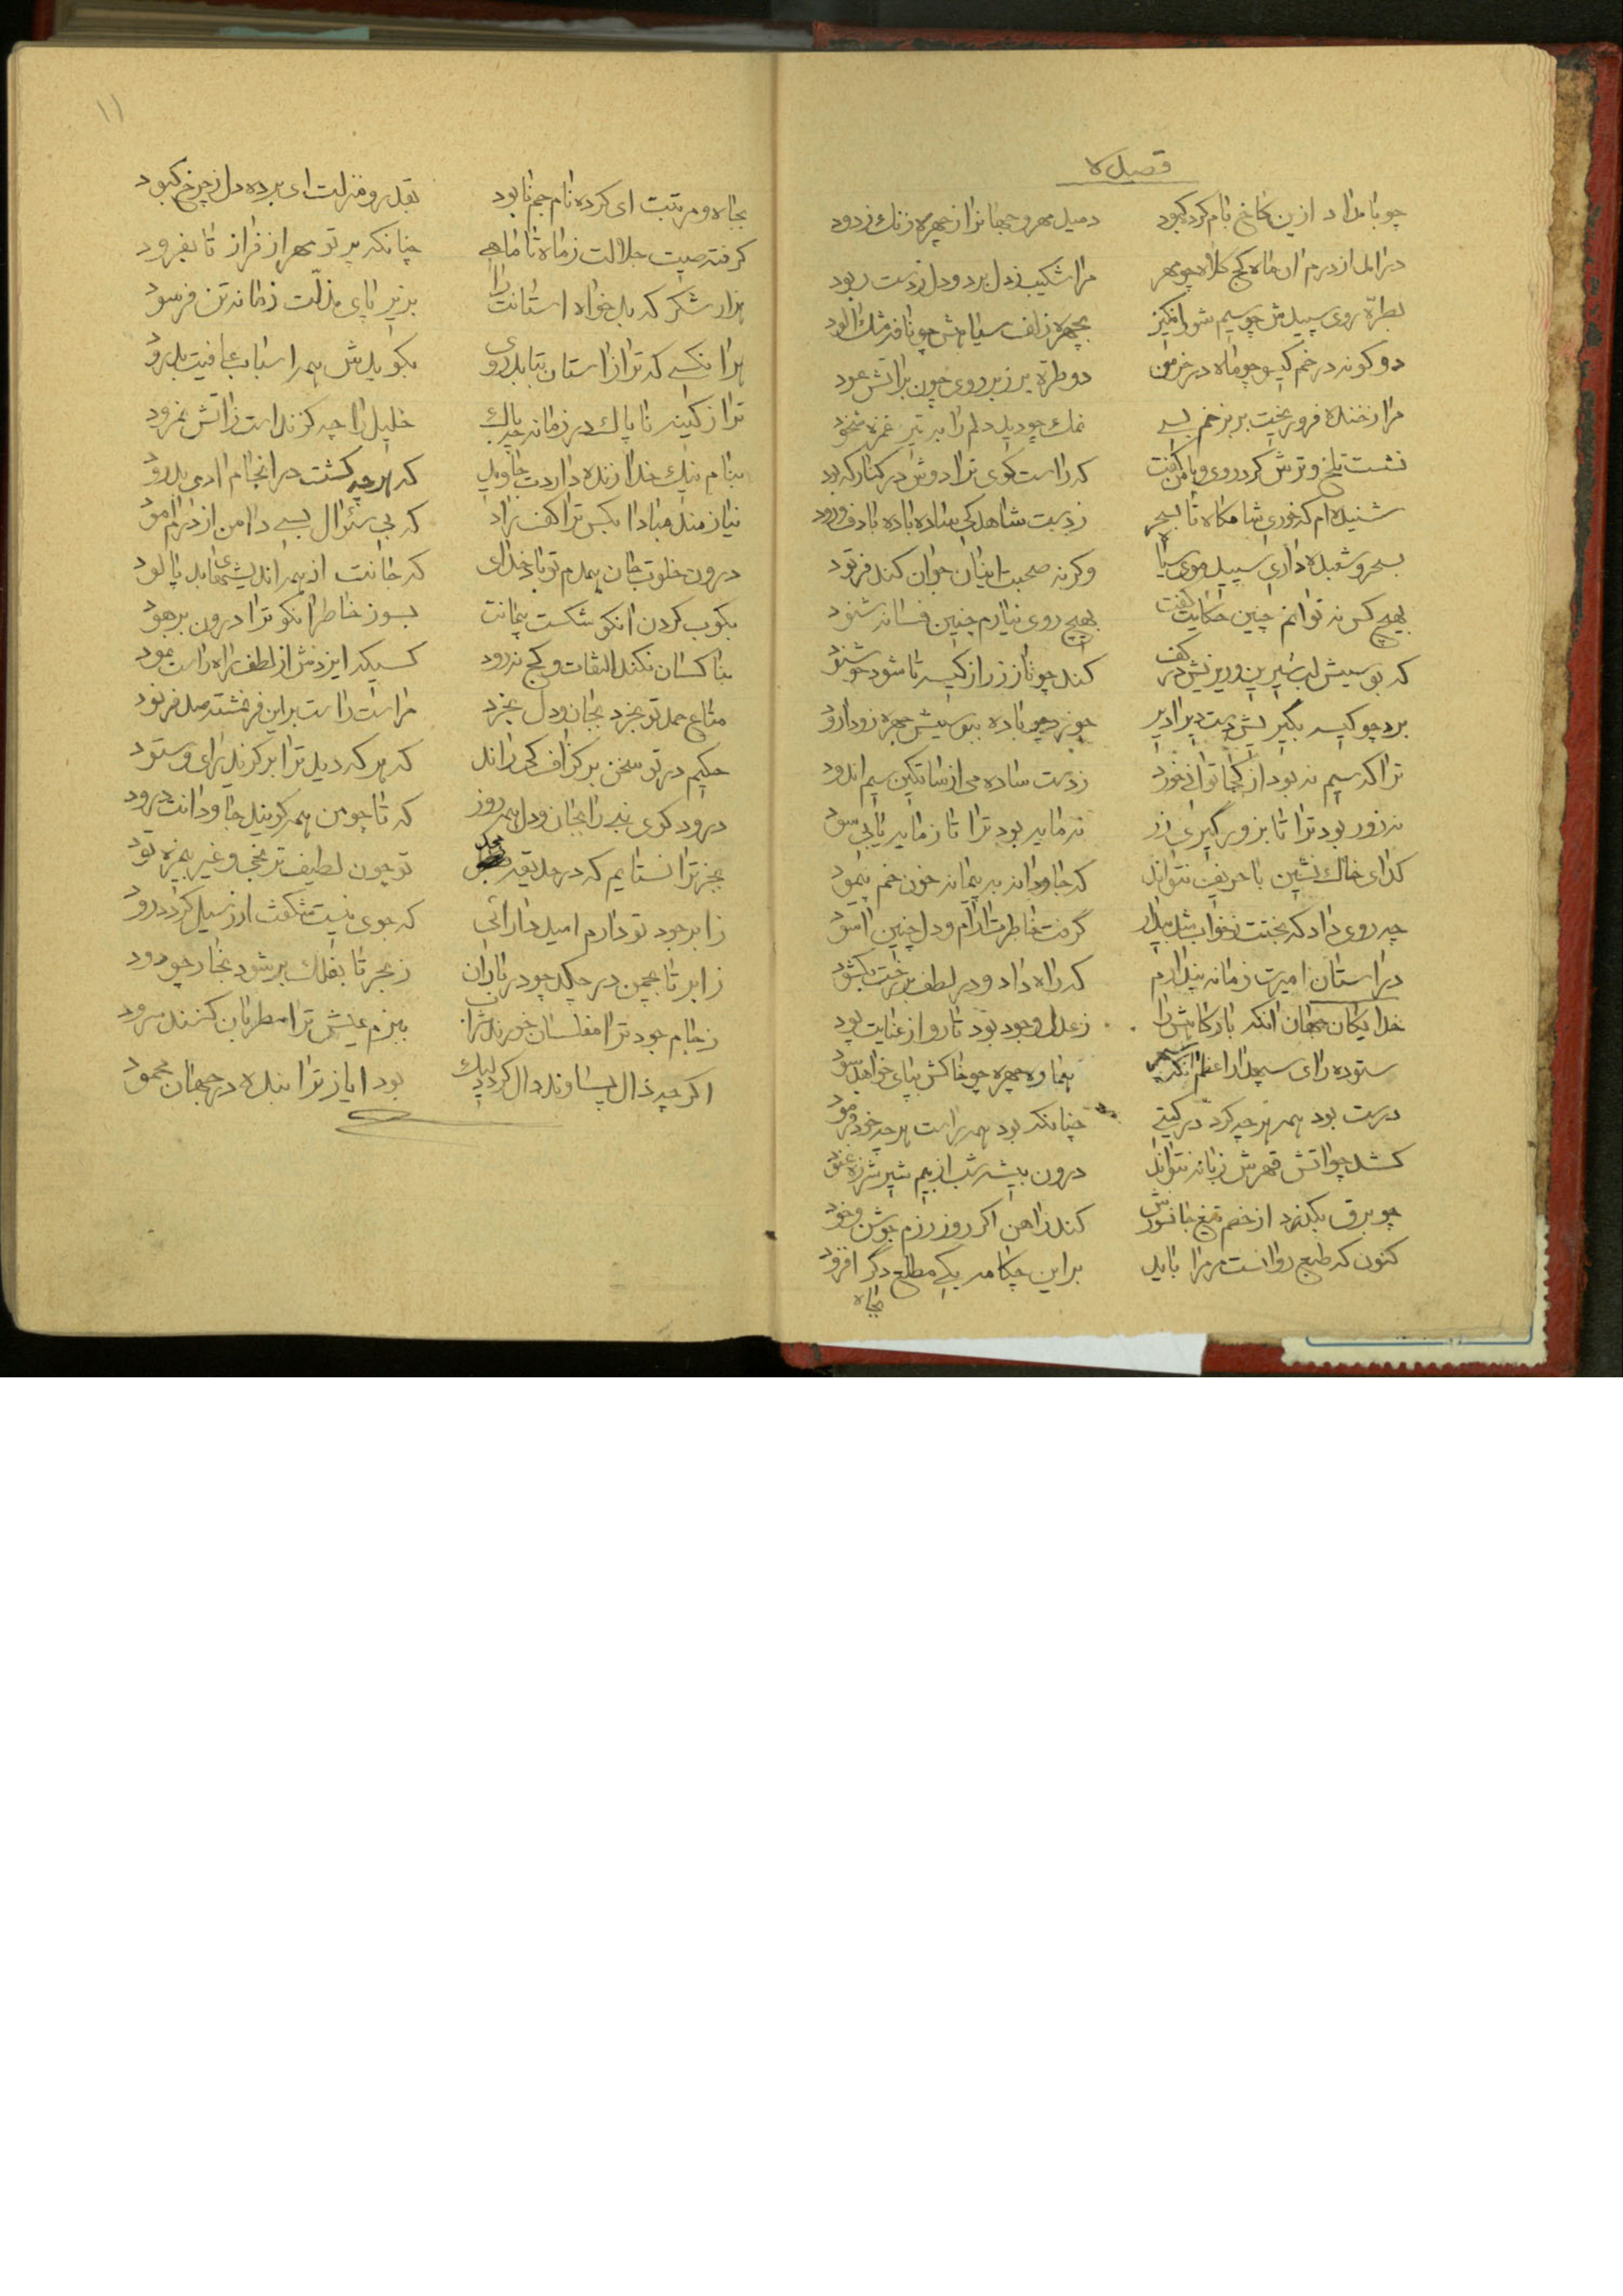 قصیده
چو بامداد ازین کاخ بام کرد کبود دمید مهر و جهانرا ز چهره زنك زدود
درامد از درم ان ماه کج کلاه چو مهر مرا شکیب زدل برد و دل زدست ربود
بطرّه روی سپیدش چو سیم شورانکیز بچهره زلف سیاهش چو نافه مشك الود
دو کونه در خم کیسو چو ماه در خرمن دو طره بر زبر روی چون بر اتش عود
مرا ز خنده فرو ریخت بر بزخم بسی نمك چو دید دلم را به تیر غمزه
نشست تلخ و ترش کرد روی و با من کفت که راست کوی ترا دوش در کنار که بود
شنیده ام که خوری شامکاه تا بسحر زدست شاهدکی ساده باده با دف و رود
بسحر و شعبده داری سپید موی سیاه وکرنه صحبت اینان جوان کند فرتود
بهیچ کس نه توانم چنین حکایت کفت بهیچ روی نیارم چنین فسانه شنود
که بوسیش لب شیرین و ریزیش در کف کند چو ناز زر از کیسه تا شود خوشنود
برد چو کیسه بگیریش دست دیرادیر چو نرد باده ببوسیش چهره زودازود
ترا که سیم نه بود از کجا توانی خورد زدست ساده می از ساتکین سیم اندود
نه زور بود ترا تا بزور گیری زر نه مایه بود ترا تا ز مایه یابی سود
کدای خاك نشین با حریف نتواند که جاودانه به پیمانه خون خم پیمود
چه روی داد که بختت زخواب شد بیدار گرفت خاطرت ارام و دل چنین اسود
در استان امیرت زمانه پندارم که راه داد و در لطف بر رخت بکشود
خدایکان جهان انکه بارکاهش را ز عدل وجود بود تار و از عنایت پود
ستوده رای سپهدار اعظم انکه سپهر هماره چهره چو خاکش بپای خواهد سود
درست بود همه هر چه کرد در کیتی چنانکه بود همه راست هر چه خود فرمود
کشد چو اتش قهرش زبانه نتواند درون بیشه شب از بیم شیر شرزه غنود
چو برق بکذرد از خصم تیغ جانسوزش کند زاهن اکر روز رزم جوشن و خود
کنون که طبع روانست مر مرا باید براین چکامه یکی مطلع دگر افزود
بجاه
۱۱
بجاه و مرتبت ای کرده نام جم نابود بقدر و منزلت ای برده دل ز چرخ کبود
کرفته صیت جلالت زماه تا ماهی چنانکه پرتو مهر از فراز تا بفرود
هزار شکر که بدخواه استانت را بزیر پای مذلّت زمانه تن فرسود
هرانکسی که ترا از استان بتابد روی بکو بدش همه اسباب عافیت بدرود
ترا ز کینه ناپاك در زمانه چه باك خلیل را چه کزند است زاتش نمرود
بنام نیك خدا زنده داردت جاوید که هر چه کشت در انجام ادمی بدرود
نیازمند مبادا بکس ترا کف راد که بی سئوال بسی دامن از درم امود
درون خلوت جان همدم تو باد خدای که جانت از همه اندیشهای بد پالود
بکوب کردن انکو شکست پیمانت بسوز خاطر انکو ترا درون برهود
بناکسان نکند التفات و کج نرود کسیکه ایزدش از لطف راه راست نمود
متاع حمد تو بخرد بجان و دل بخرد مراست راست براین فرخجسته صد فرنود
حکیم در تو سخن بر کزاف کی راند که هر که دید ترا بر کزید رای و ستود
درود کوی نبی را بجان و دل همه روز که تا چو من همه کویند جاودانت درود
بجز ترا نستایم که در حدیقه مجد تو چون لطیف ترنجی و غیر بیمزه تود
زابر جود تو دارم امید دارائی که جوی نیست شکفت ار ز سیل کردد رود
زابر تا بچمن در چکد چو در باران زبحر تا بفلك بر شود بخار چو دود
زجام جود ترا مفلسان خورند شراب ببزم عیش ترا مطربان کنند سرود
اکر چه ذال پساوند دال کردد لیك بود ایاز ترا بنده در جهان محمود